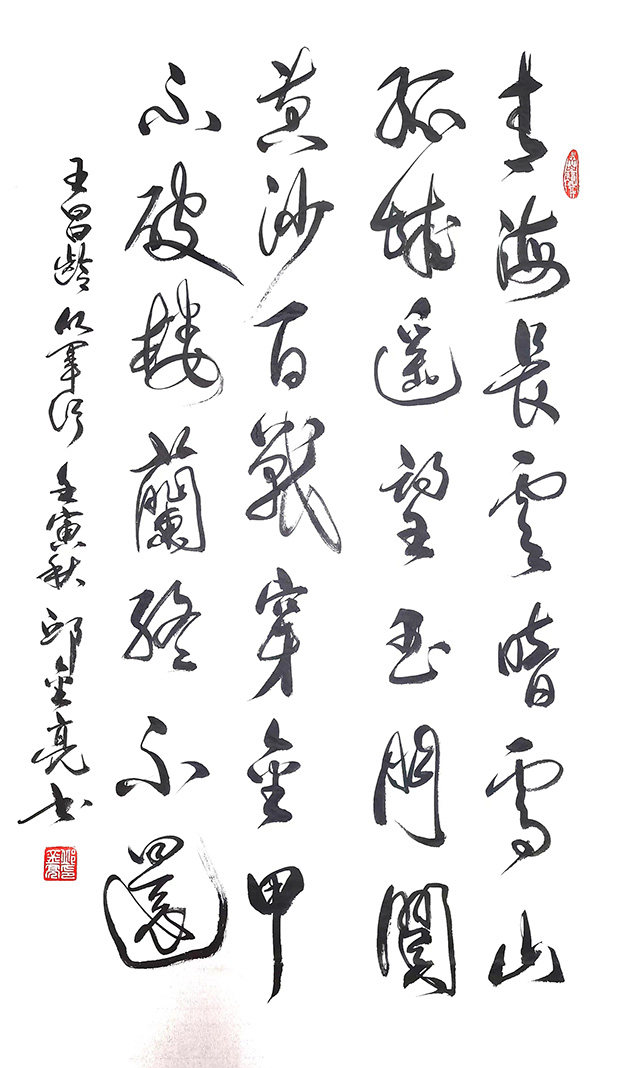 青海長雲暗雪山
孤城遥望玉門關
黄沙百戰穿金甲
不破樓蘭終不還
王昌齡從軍行 壬寅秋 邱金亮書